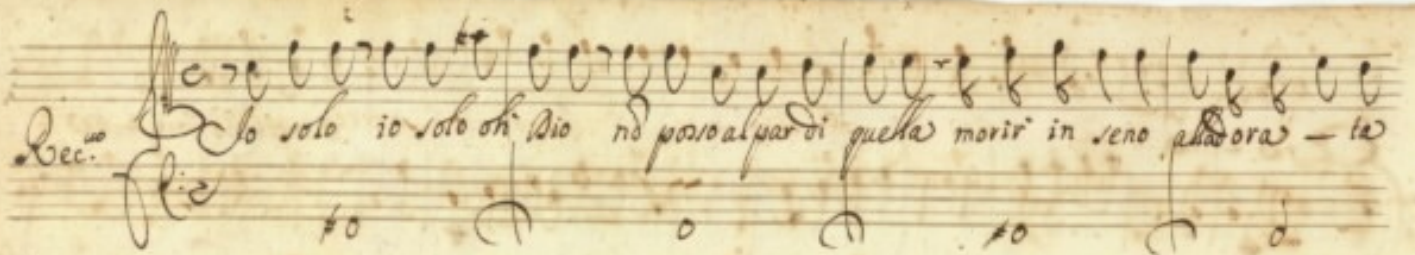 Io solo io solo oh Dio nō posso al par di quella morir in seno all'adora – ta
Rec.uo